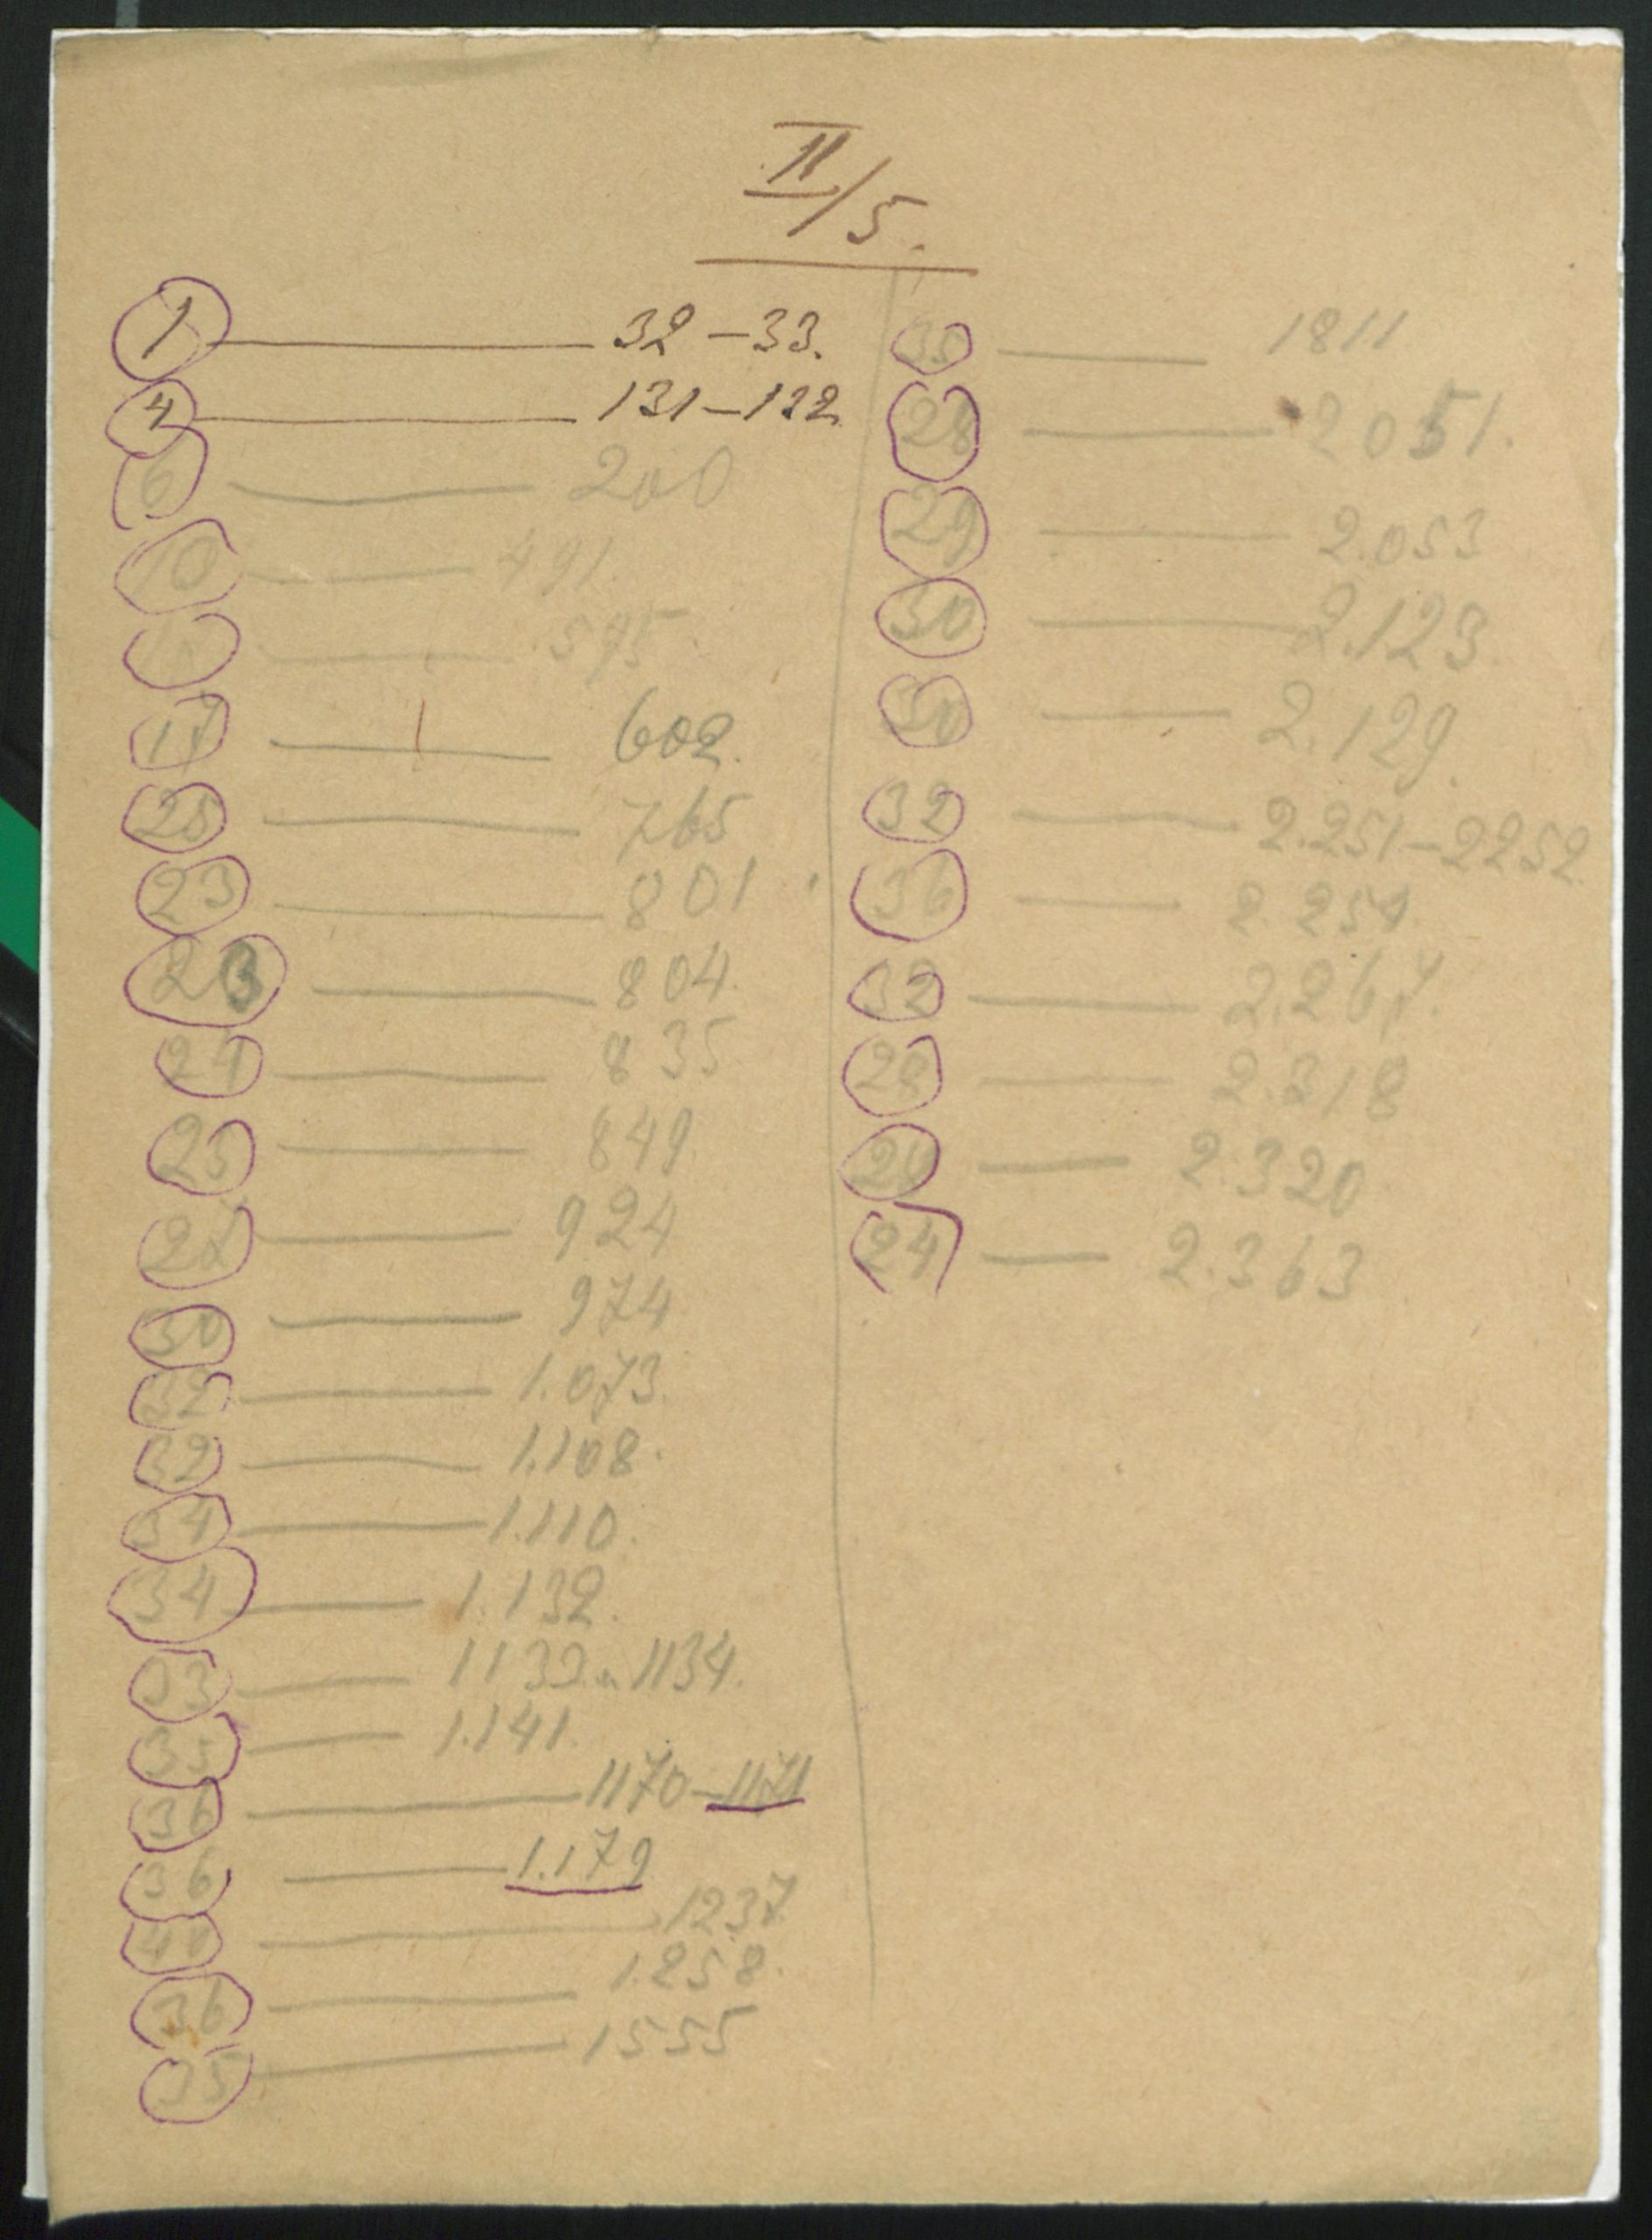 II/5.
1 — 32-33.
4 — 131-132
6 — 200
10 — 491.
— 595
17 — 602.
25 — 765
23 — 801
23 — 804.
24 — 835
25 — 849.
— 924
30 — 974
32 — 1.073.
32 — 1.108.
34 — 1.110.
34 — 1.132.
33 — 1133 1134.
35 — 1.141.
36 — 1170-1171
36 — 1.179
40 — 1237
36 — 1.258.
35 — 1555
35 — 1811
28 — 2051.
29 — 2.053
30 — 2.123
30 — 2.129.
32 — 2.251-2252.
36 — 2 254.
32 — 2.267.
28 — 2.318
— 2.320
24 — 2.363